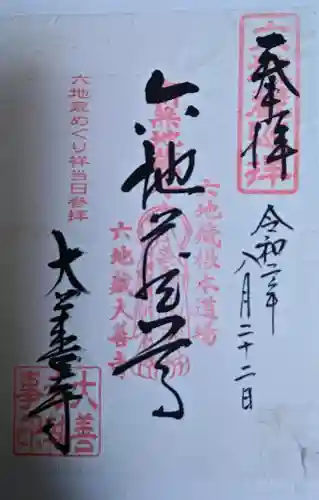 奉拝
令和二年
八月二十二日
六地蔵尊
六地蔵根本道場
六地蔵大善寺
六地蔵めぐり祥当日参拝
大善寺